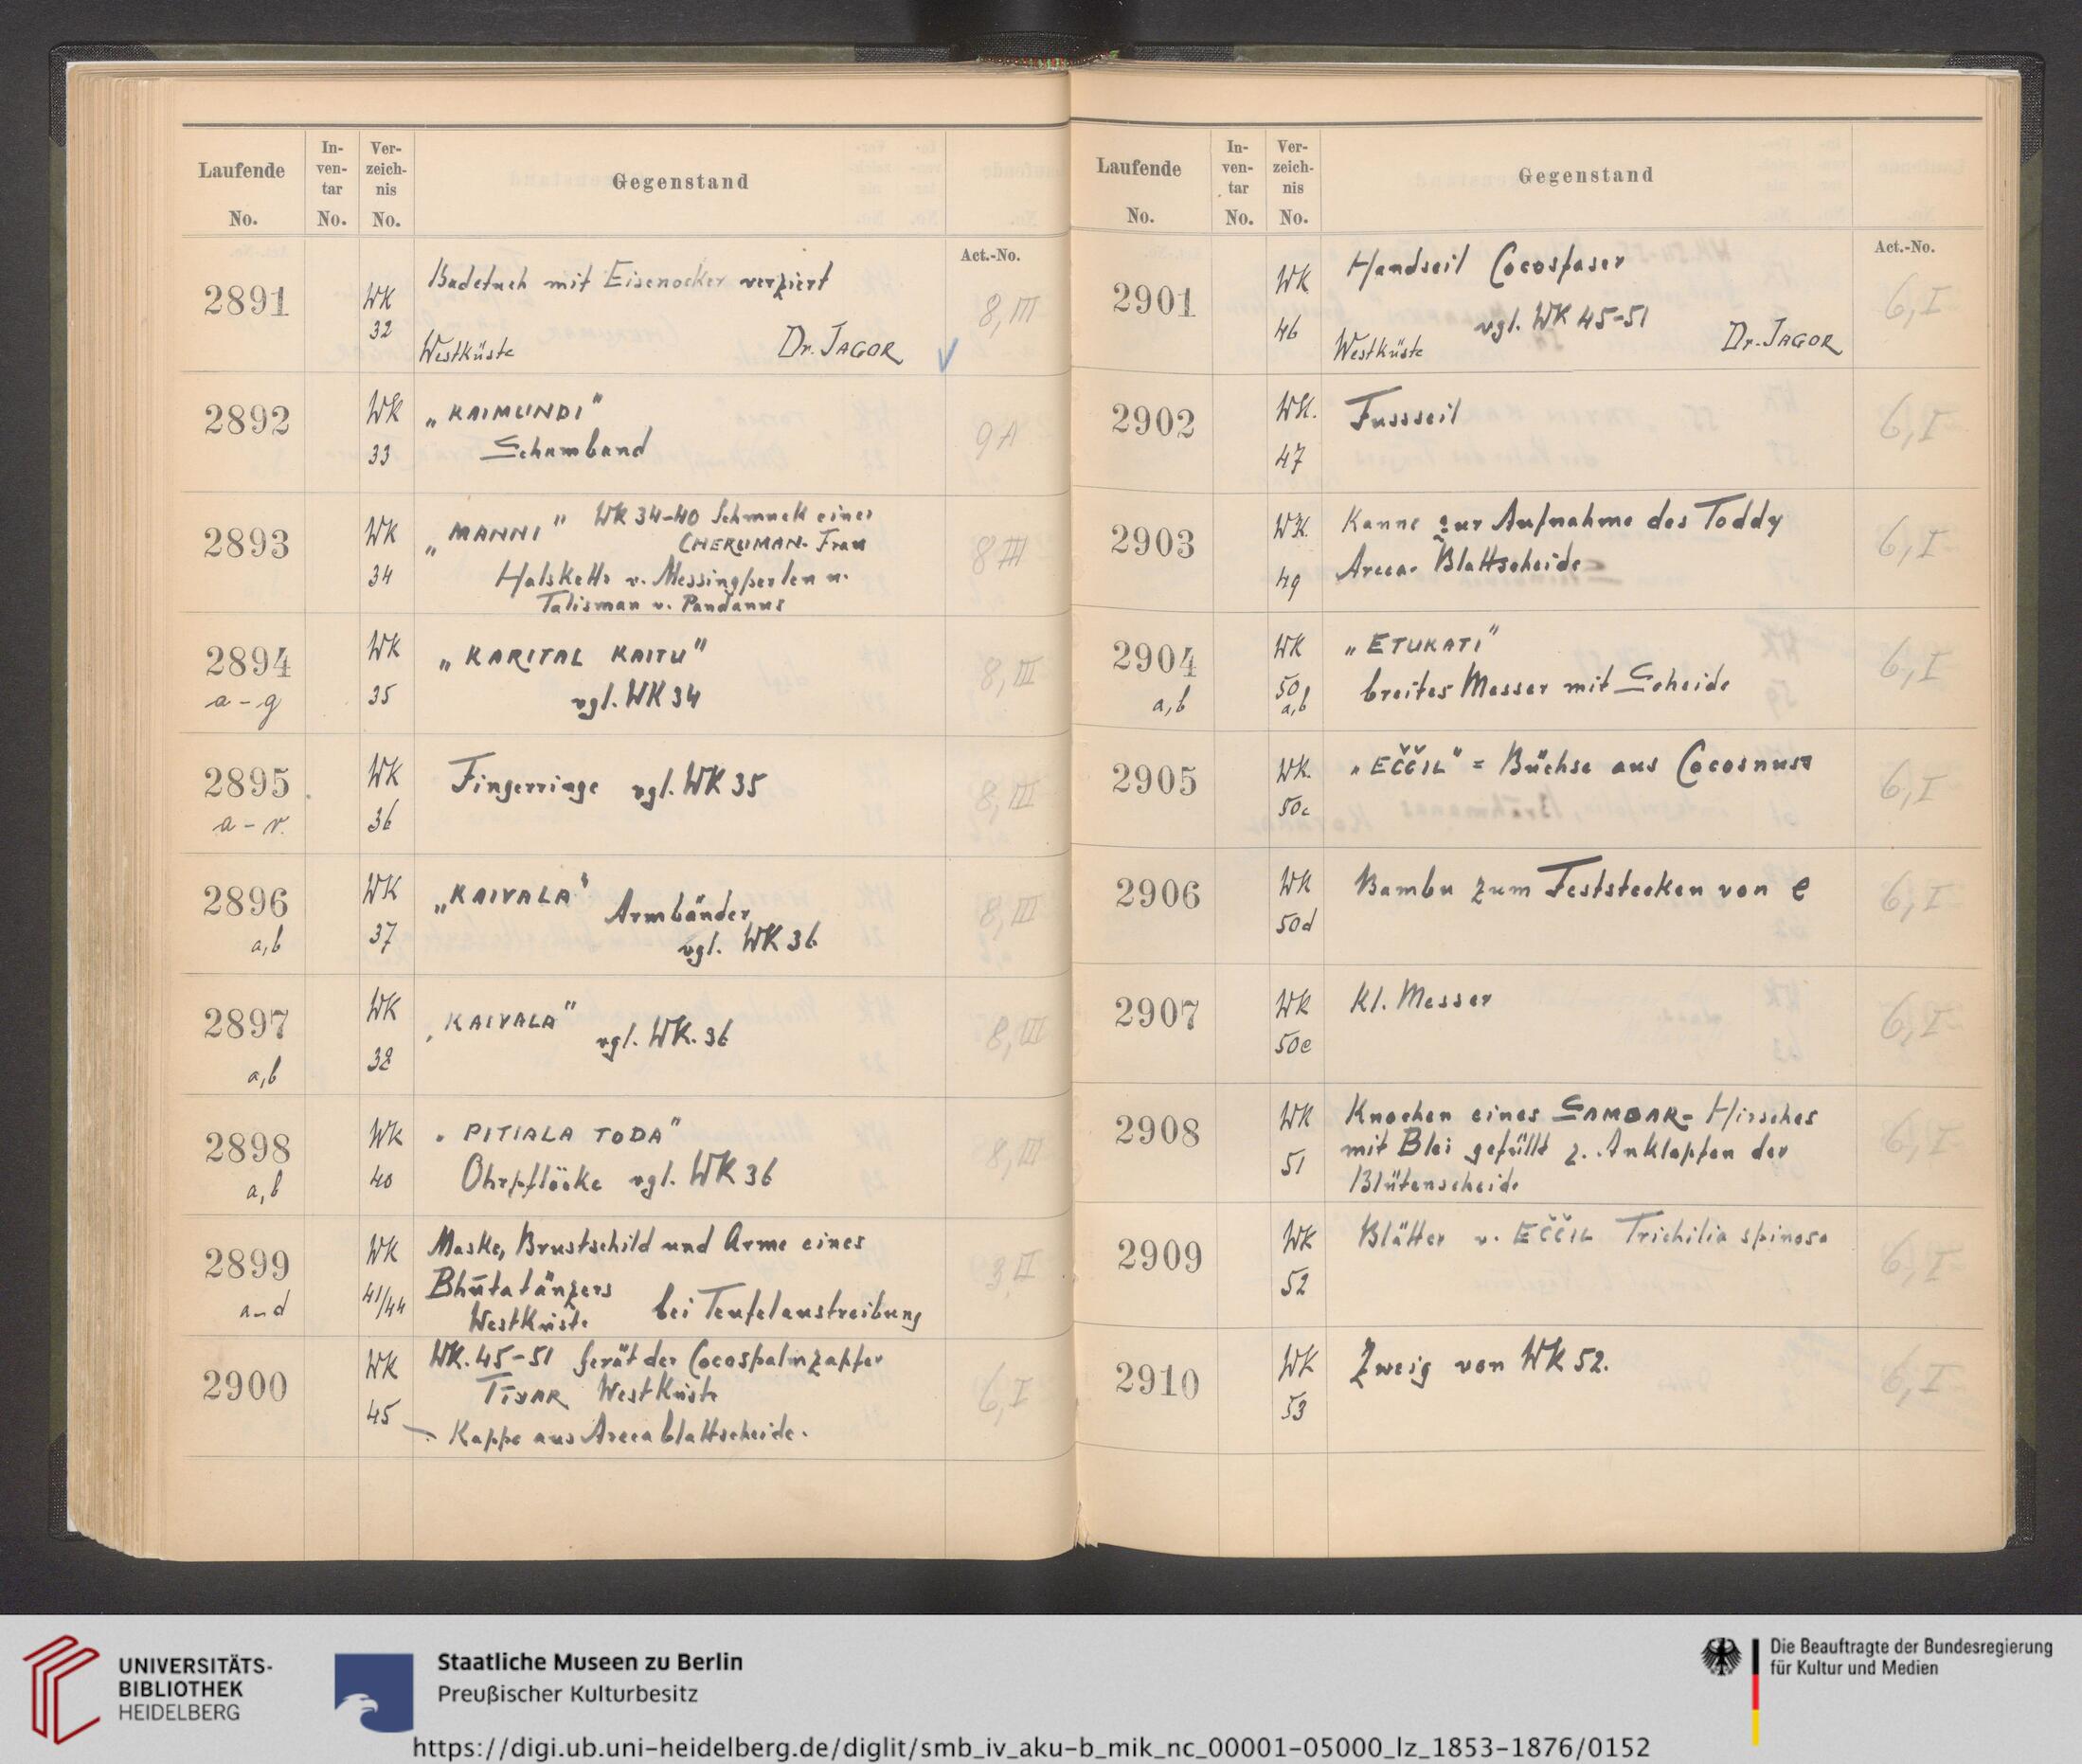 Laufende No.
In-ven-tar No.
Ver-zeich-nis No.
Gegenstand
Act.-No.
2891
WK 32
Badetuch mit Eisenocker verziert
Westküste Dr. JAGOR
8, III
2892
WK 33
„KAIMUNDI"
Schamband
9A
2893
WK 34
„MANNI" WK 34-40 Schmuck einer
CHERUMAN-Frau
Halskette v. Messingperlen u.
Talisman v. Pandanus
8 III
2894
a-g
WK 35
„KARITAL KAITU"
vgl. WK 34
8, III
2895
a-r.
WK 36
Fingerringe vgl. WK 35
8, III
2896
a,b
WK 37
„KAIVALA"
Armbänder
vgl. WK 36
8, III
2897
a,b
WK 38
„KAIVALA"
vgl. WK. 36
8, III
2898
a,b
WK 40
„PITIALA TODA"
Ohrpflöcke vgl. WK 36
8, III
2899
a-d
WK 41/44
Maske, Brustschild und Arme eines
Bhūtatänzers
Westküste bei Teufelaustreibung
3 II
2900
WK 45
WK. 45-51 Gerät der Cocospalmzapfer
TĪYAR Westküste
Kappe aus Arecablattscheide.
6, I
Laufende No.
In-ven-tar No.
Ver-zeich-nis No.
Gegenstand
Act.-No.
2901
WK 46
Handseil Cocosfaser
vgl. WK 45-51
Westküste Dr. JAGOR
6, I
2902
WK. 47
Fussseil
6, I
2903
WK. 49
Kanne zur Aufnahme des Toddy
Areca-Blattscheide
6, I
2904
a,b
WK 50 a,b
„ETUKATI"
breites Messer mit Scheide
6, I
2905
WK. 50c
„EČČIL" = Büchse aus Cocosnuss
6, I
2906
WK 50d
Bambu zum Feststecken von e
6, I
2907
WK 50e
Kl. Messer
6, I
2908
WK 51
Knochen eines SAMBAR-Hirsches
mit Blei gefüllt z. Anklopfen der
Blütenscheide
6, I
2909
WK 52
Blätter v. EČČIL Trichilia spinosa
6, I
2910
WK 53
Zweig von WK 52.
6, I
UNIVERSITÄTS-
BIBLIOTHEK
HEIDELBERG
Staatliche Museen zu Berlin
Preußischer Kulturbesitz
Die Beauftragte der Bundesregierung
für Kultur und Medien
https://digi.ub.uni-heidelberg.de/diglit/smb_iv_aku-b_mik_nc_00001-05000_lz_1853-1876/0152